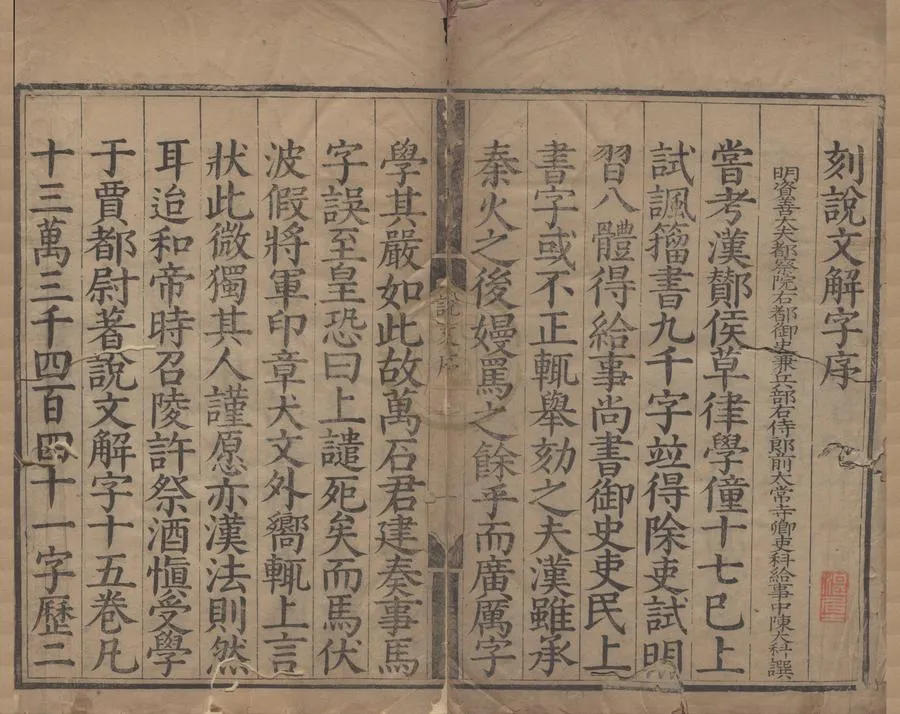 刻說文解字序
明資善大夫都察院右都御史兼兵部右侍郎前太常寺卿吏科給事中陳大科譔
嘗考漢酇侯草律學僮十七巳上
試諷籒書九千字並得除吏試明
習八體得給事尚書御史吏民上
書字或不正輒舉劾之夫漢雖承
秦火之後嫚罵之餘乎而廣厲字
說文序
一
學其嚴如此故萬石君建奏事馬
字誤至皇恐曰上譴死矣而馬伏
波假將軍印章犬文外嚮輒上言
狀此微獨其人謹愿亦漢法則然
耳迨和帝時召陵許祭酒愼受學
于賈都尉著說文解字十五卷凡
十三萬三千四百四十一字歷二